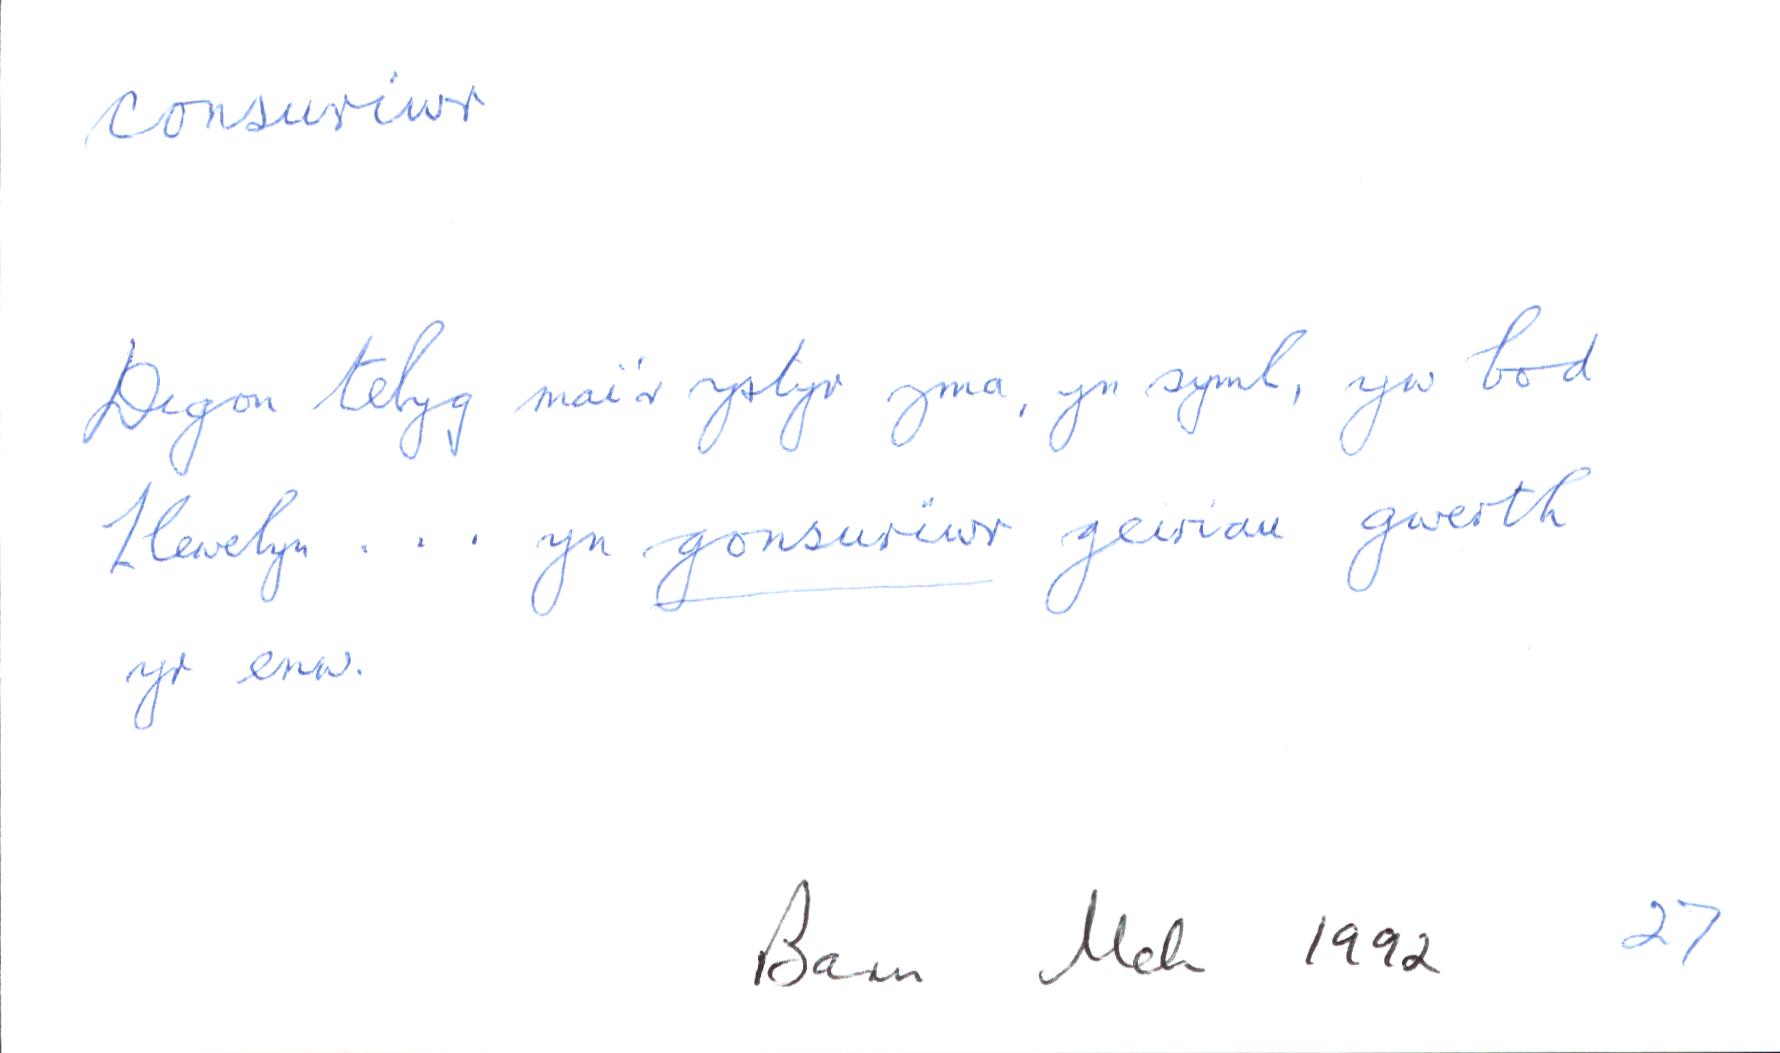 consuriwr
Degon tebyg mai'r ystyr yma, yn syml, yw bod
Llewelyn . . . yn gonsuriwr geiriau gwerth
yr enw.
Barn Meh 1992 27